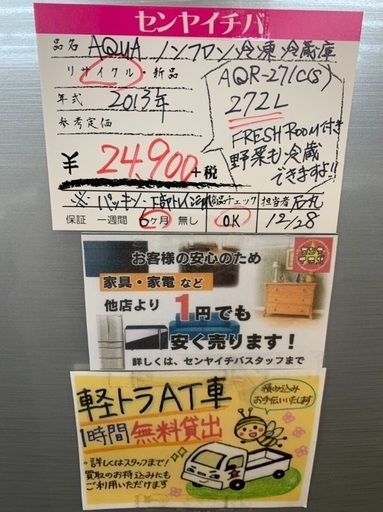 センヤイチバ
品名 AQUA ノンフロン冷凍冷蔵庫
リサイクル・新品
AQR-271C(S)
年式 2013年
272L
参考定価
FRESH ROOM付き
野菜も冷蔵
できますよ!!
¥24,900+税
※パッキン
チェック 担当者
保証 一週間 6ヶ月 無し OK 12/28
お客様の安心のため
家具・家電など
他店より 1円でも
安く売ります!
詳しくは、センヤイチバスタッフまで
軽トラAT車
積み込み
お手伝いします
1時間無料貸出
・詳しくはスタッフまで!
買取のお持込みにも
ご利用いただけます